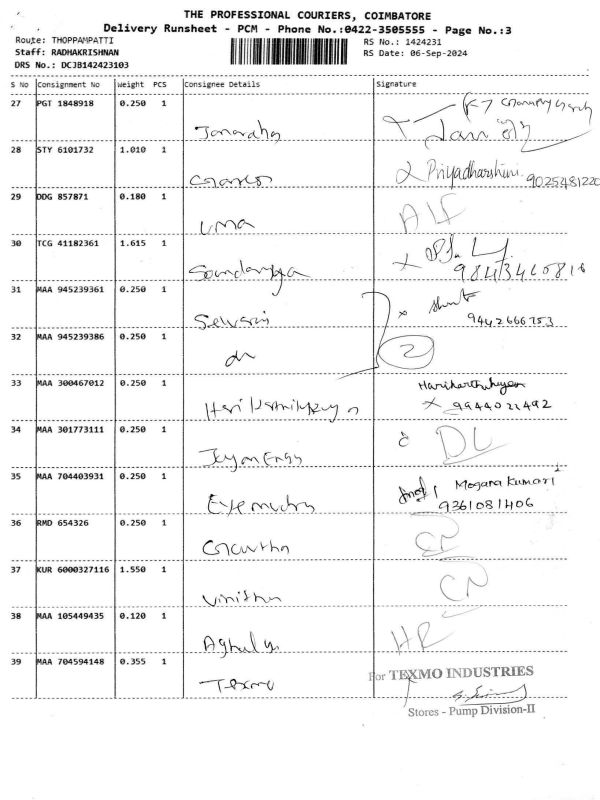 THE PROFESSIONAL COURIERS, COIMBATORE
Delivery Runsheet - PCM - Phone No.:0422-3505555 - Page No.:3
Route: THOPPAMPATTI
Staff: RADHAKRISHNAN
DRS No.: DCJB142423103
RS No.: 1424231
RS Date: 06-Sep-2024
S No Consignment No Weight PCS Consignee Details Signature
27 PGT 1848918 0.250 1
28 STY 6101732 1.010 1
Priyadharshini 9025481220
29 DDG 857871 0.180 1
uma
30 TCG 41182361 1.615 1
Soundarya 9843460816
31 MAA 945239361 0.250 1
Selvaraj 9442666753
32 MAA 945239386 0.250 1
do 2
33 MAA 300467012 0.250 1
9944022492
34 MAA 301773111 0.250 1
DL
35 MAA 704403931 0.250 1
Mogana Kumari
9361081406
36 RMD 654326 0.250 1
37 KUR 6000327116 1.550 1
CN
38 MAA 105449435 0.120 1
HR
39 MAA 704594148 0.355 1
Texmo
For TEXMO INDUSTRIES
Stores - Pump Division-II